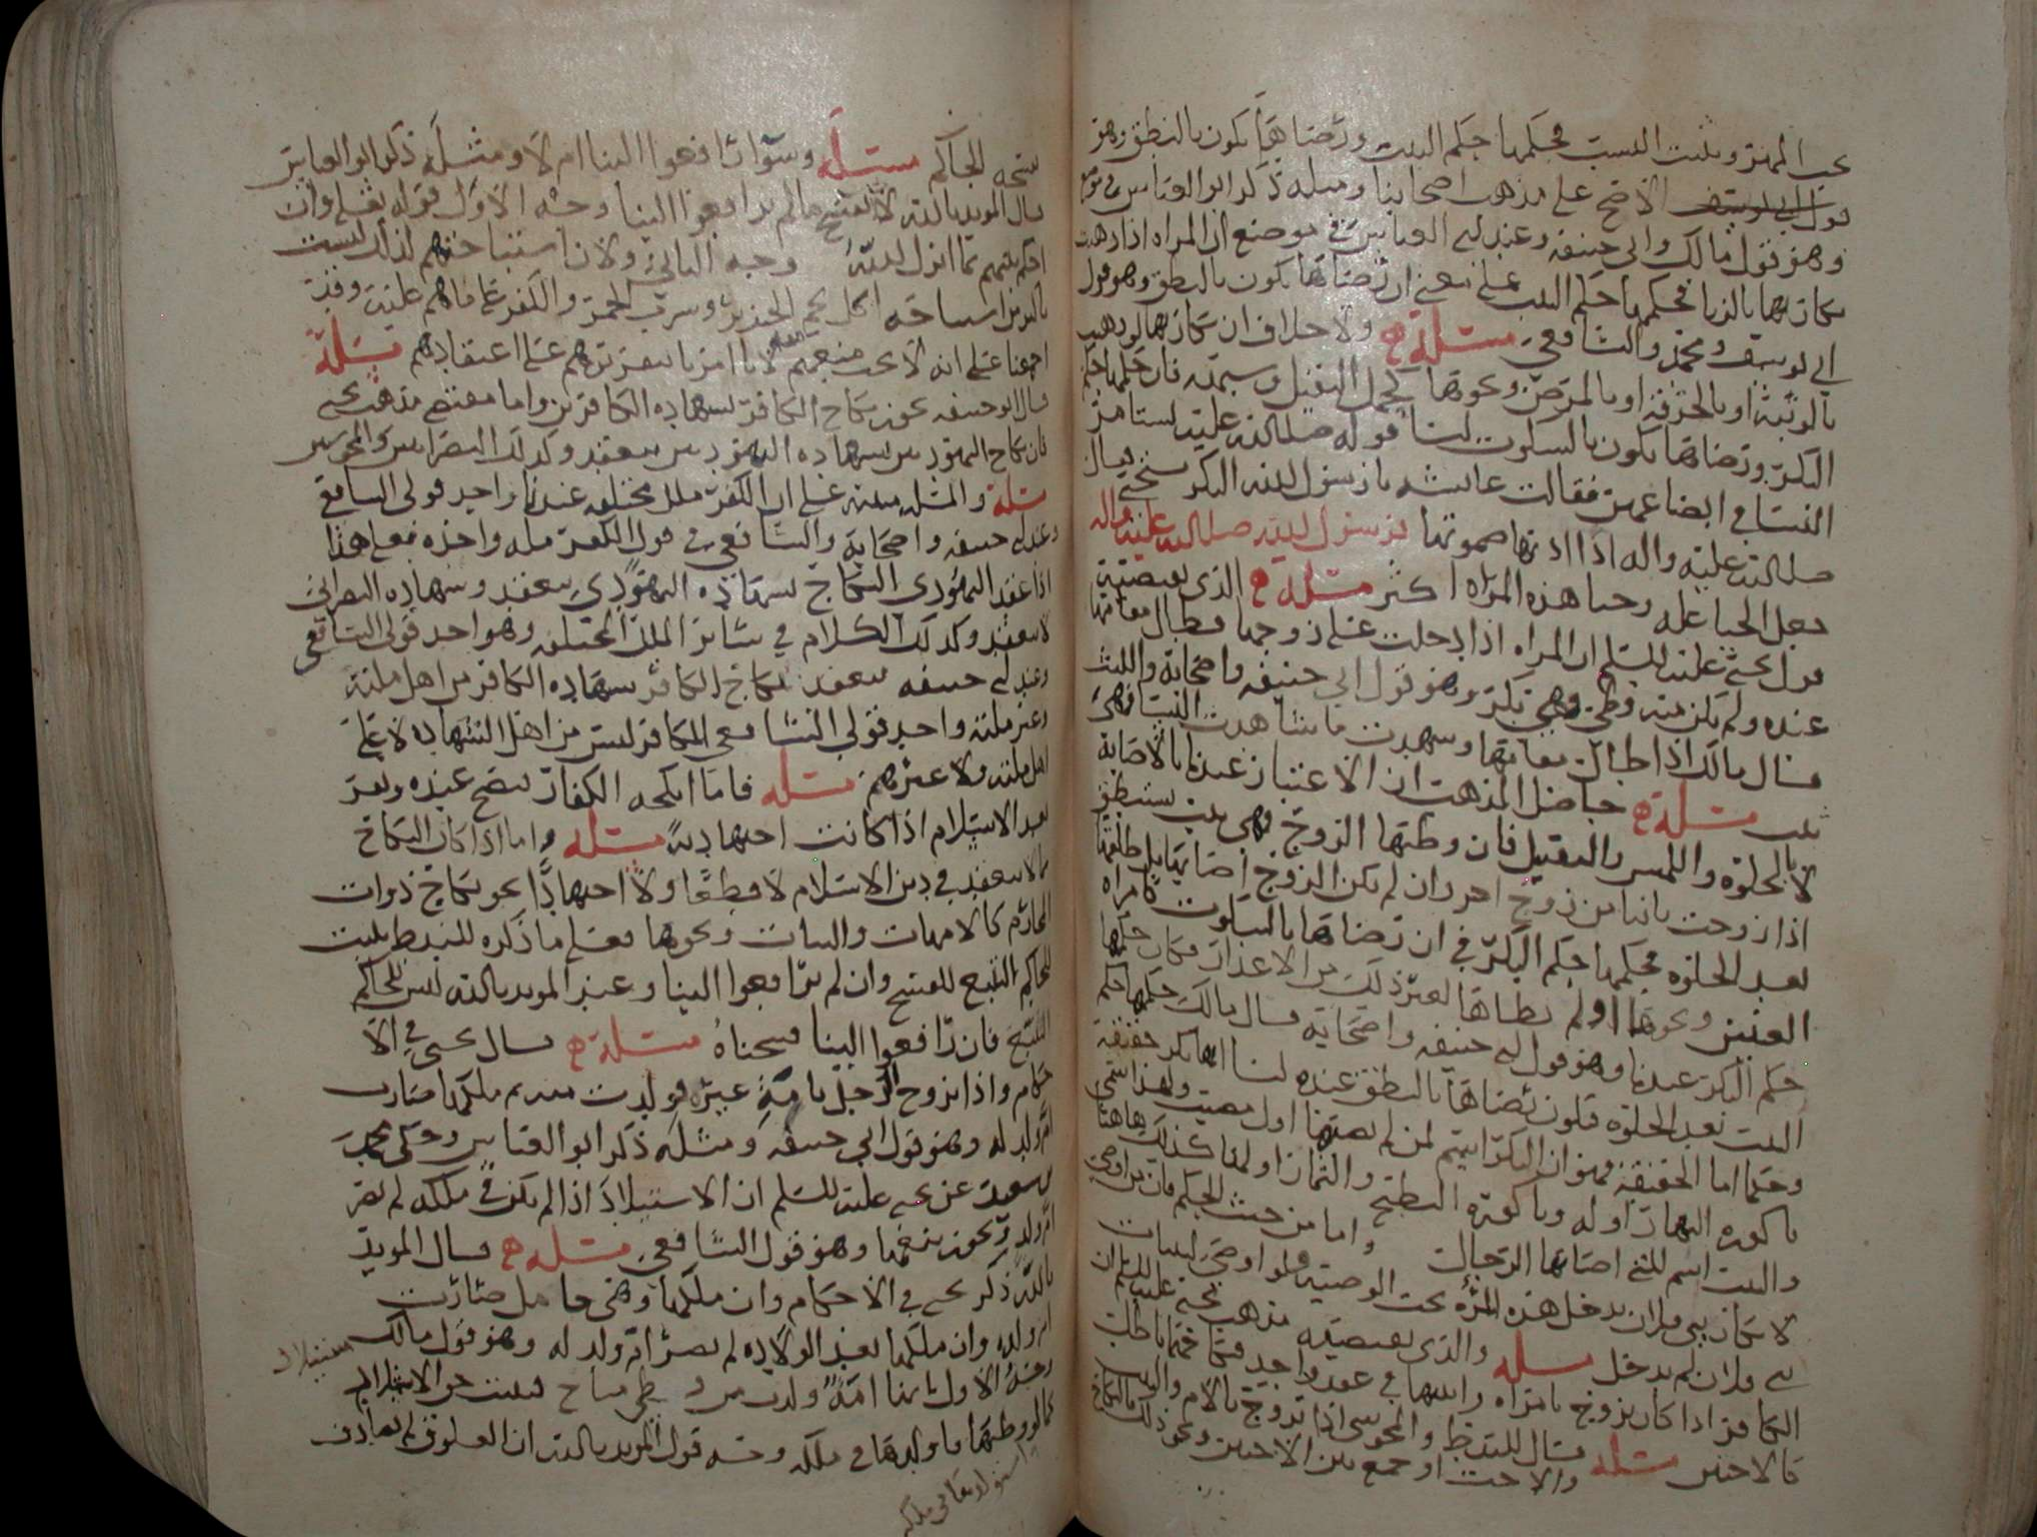 يجب المهر ويثبت النسب فحكمها حكم الثيب ورضاها يكون بالنطق وهو
قول ابي يوسف الاصح على مذهب اصحابنا ومثله ذكر ابو العباس في
وهو قول مالك وابي حنيفه وعند ابي العباس في موضع ان المراه اذا ذهبت
بكارتها بالزنا فحكمها حكم الثيب على معنى ان رضاها يكون بالنطق وهو قول
ابي يوسف ومحمد والشافعي مسئلة ولا خلاف ان بكارتها لو ذهبت
بالوثبة او بالحرقة او بالمرض ونحوها كحمل الثقيل وشبهه فان حكمها حكم
البكر ورضاها يكون بالسكوت لنا قوله صلى الله عليه تستامر
النسا في ابضاعهن فقالت عائشه يا رسول الله البكر تستحي فقال
رسول الله صلى الله عليه واله
صلى الله عليه واله اذا اذنها صموتها
فجعل الحيا عله وحيا هذه المراه اكثر مسئلة الذي يقتضيه
قول يحيى عليه السلم ان المراه اذا دخلت على زوجها فطال مقامها
عنده ولم يكن منه وطي وهي بكر وهو قول ابي حنيفه واصحابه والليث
قال مالك اذا طال مقامها وشهدت ما شاهدت النسا فهي
ثيب مسئلة حاصل المذهب ان الاعتبار عندنا بالاصابة
لا بالخلوه واللمس والتقبيل فان وطئها الزوج فهي ثيب تستنطق
اذا زوجت ثانيا من زوج اخر وان لم يكن الزوج اصابها بل طلقها
بعد الخلوه فحكمها حكم البكر في ان رضاها بالسكوت كامراه
العنين ونحوها او لم يطاها لغير ذلك من الاعذار فكان حكمها
حكم البكر عندنا وهو قول ابي حنيفه واصحابه قال مالك حكمها حكم
الثيب بعد الخلوه فيكون رضاها بالنطق عنده لنا انها بكر حقيقة
وحكما اما الحقيقة فهو ان البكر اسم لمن لم يصبها اول مصيب ولهذا سمي
باكوره النهار اوله وباكورة البطيخ والثمار اولها كذلك هاهنا
والثيب اسم للتي اصابها الرجال واما من حيث الحكم فان من اوصى
لابكار بني فلان يدخل هذه المرأه تحت الوصيه ولو اوصى لثيبات
بني فلان لم تدخل مسئله والذي يقتضيه مذهب يحيى عليه السلم ان
الكافر اذا كان تزوج بامراه وابنتها في عقد واحد فنكاحهما باطل
كالاختين مسئله قال للندط والمجوسي اذا تزوج بالام والبنت
والاخت او جمع بين الاختين ونحو ذلك
يتجه للحاكم مسئله وسوا ترافعوا الينا ام لا ومثله ذكر ابو العباس
قال المويد بالله لا يفسخ ما لم يترافعوا الينا وجه الاول قوله تعالى وان
احكم بينهم بما انزل الله وجه الثاني ولان استباحتهم لذلك ليست
باكثر من استباحة اكل لحم الخنزير وشرب الخمر والكفر بما هم عليه وقد
اجمعنا على انه لا يجب منعهم لانا امرنا بتقريرهم على اعتقادهم مسئلة
قال ابو حنيفه يجوز نكاح الكافر بشهاده الكافرين واما مقتضى مذهب يحيى
فان نكاح اليهودي بشهاده اليهوديين ينعقد وكذلك النصراني والمجوسي
مسئلة والمسئله مبنيه على ان الكفر ملل مختلفه عندنا واحد قولي الشافعي
وعند ابي حنيفه واصحابه والشافعي في قول الكفر مله واحده فعلى هذا
اذا عقد اليهودي النكاح بشهاده اليهودي ينعقد وبشهاده النصراني
لا ينعقد وكذلك الكلام في سائر الملل المختلفه وهو احد قولي الشافعي
وعند ابي حنيفه ينعقد نكاح الكافر بشهاده الكافر من اهل ملته
وغير ملته واحد قولي الشافعي الكافر ليس من اهل الشهاده لا على
اهل ملته ولا غيرهم مسئله فاما انكحه الكفار تصح عنده ويقر
بعد الاسلام اذا كانت اجتهاديه مسئله واما اذا كان النكاح
مما لا ينعقد في دين الاسلام لا قطعا ولا اجتهادا نحو نكاح ذوات
المحارم كالامهات والبنات ونحوها فعلى ما ذكره للندط يثبت
للحاكم التتبع للفسخ وان لم يترافعوا الينا وعند المويد بالله ليس للحاكم
التتبع فان ترافعوا الينا فسخناه مسئلة قال يحيى في الا
حكام واذا تزوج الرجل بامة غيره فولدت منه ثم ملكها صارت
ام ولد له وهو قول ابي حنيفه ومثله ذكر ابو العباس وحكى محمد
بن سعيد عن يحيى عليه السلم ان الاستيلاد اذا لم يكن في ملكه لم تصر
ام ولد ويجوز بيعها وهو قول الشافعي مسئلة قال المويد
بالله ذكر يحيى في الاحكام وان ملكها وهي حامل صارت
ام ولد وان ملكها بعد الولاده لم تصر ام ولد له وهو قول مالك
وجه الاول انها امة ولدت من وطي مباح فيثبت حق الاستيلاد
كما لو وطئها فاولدها في ملكه وجه قول المويد بالله ان العلوق لم يصادف
استولدها في ملكه